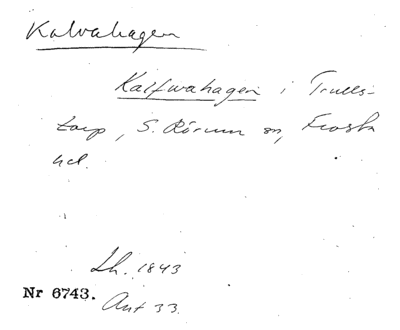 Kalvahagen
Kalfwahagen i Trulls-
torp, S. Rörum sn, Frosta
hd.
Lh. 1843
Nr 6743. Ant 33.